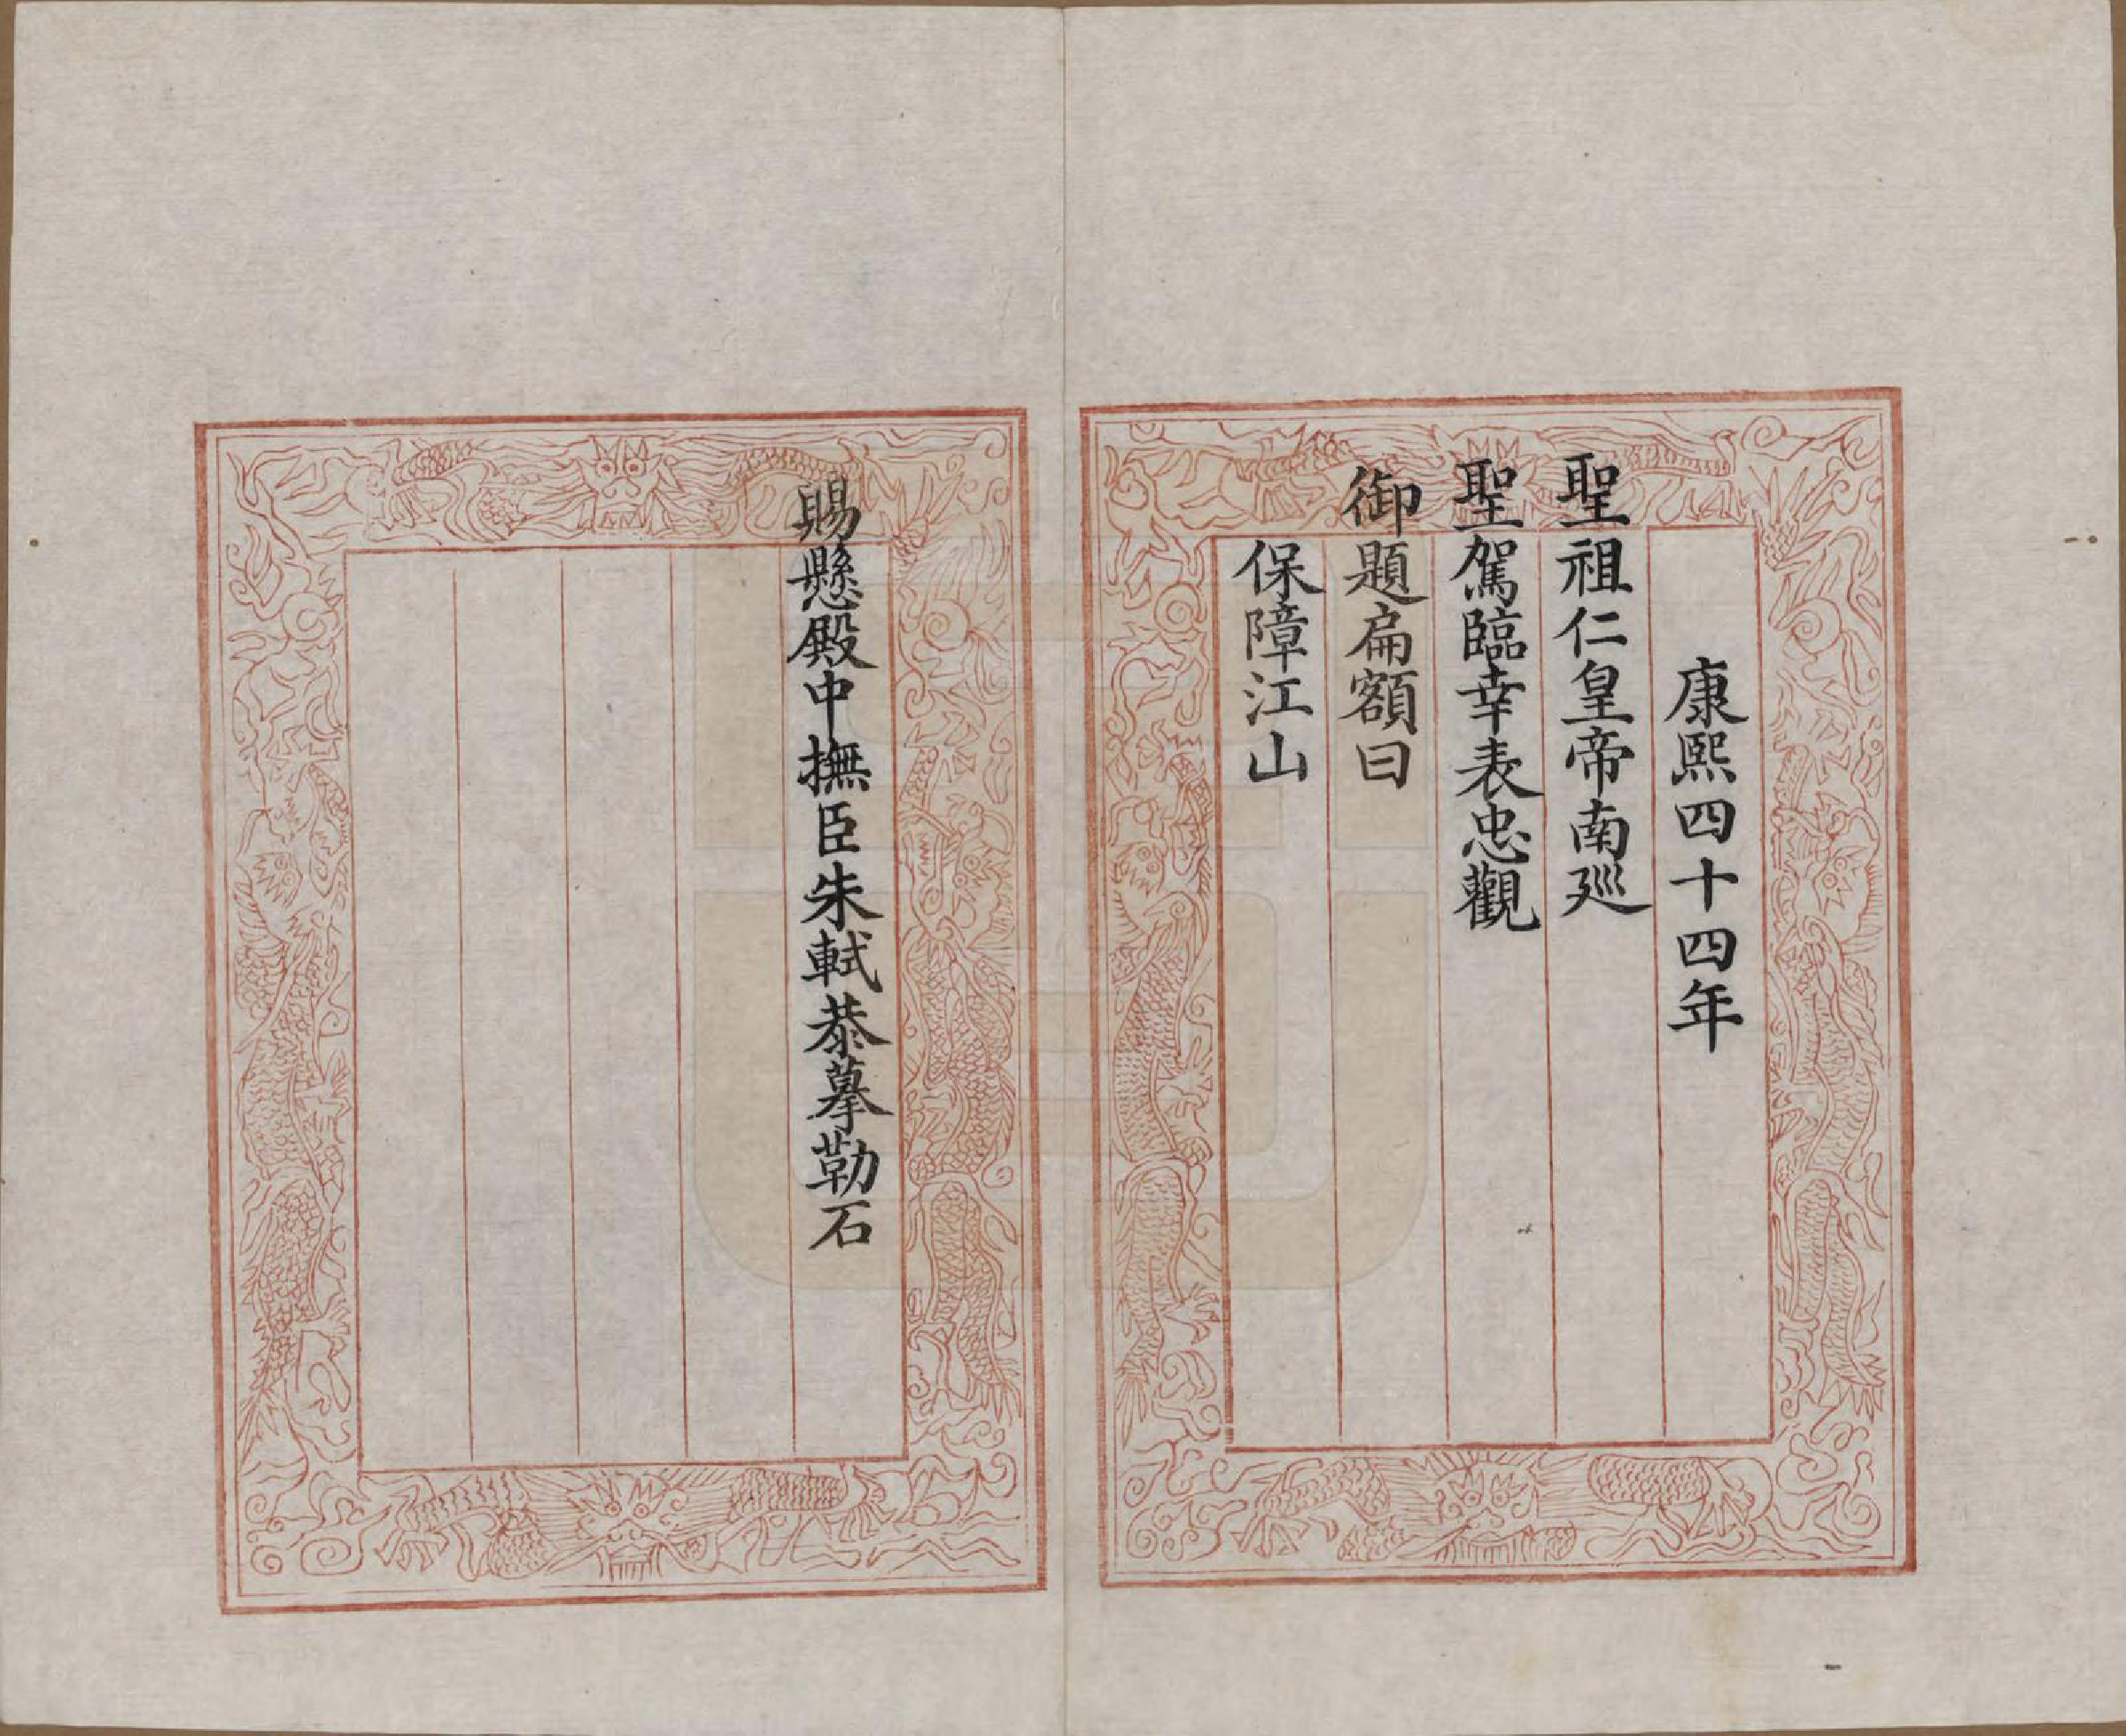 康熙四十四年
聖祖仁皇帝南廵
聖駕臨幸表忠觀
御題扁額曰
保障江山
賜懸殿中撫臣朱軾恭摹勒石